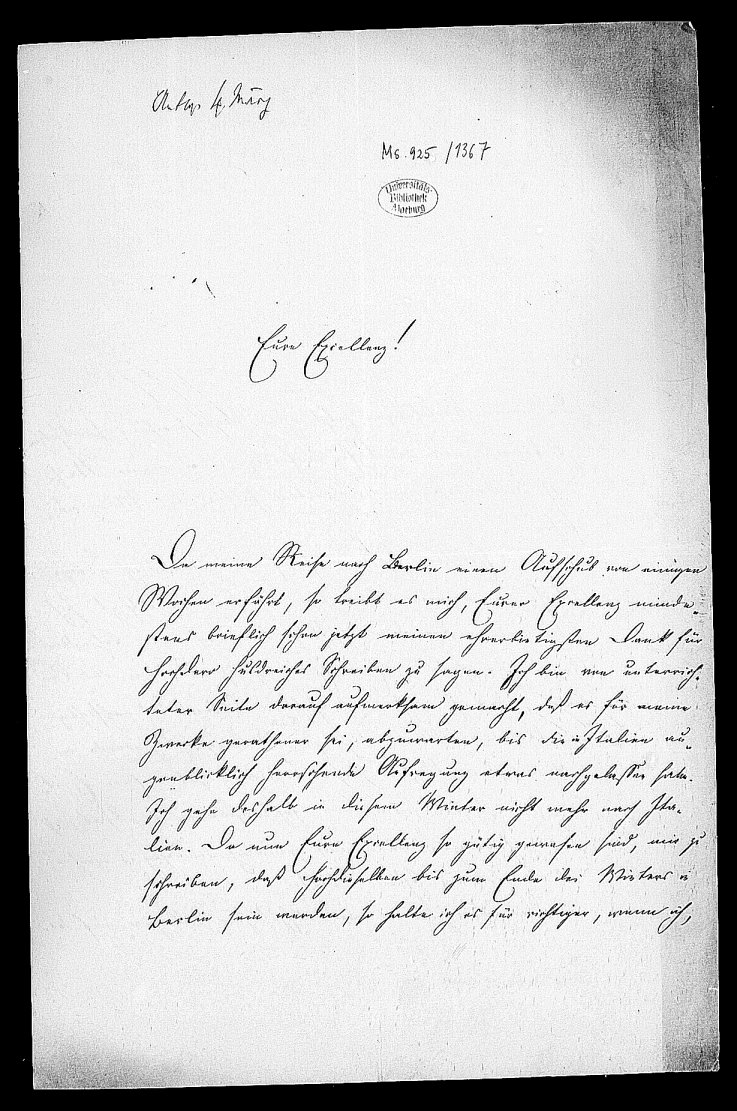 4. März
Ms. 925 /1367
Universitäts-
Bibliothek
Marburg
Eure Excellenz!
Da meine Reise nach Berlin einen Aufschub von einigen
Wochen erfährt, so treibt es mich, Eurer Excellenz minde-
stens brieflich schon jetzt meinen ehrerbietigsten Dank für
Hochdero huldreiches Schreiben zu sagen. Ich bin von unterrich-
teter Seite darauf aufmerksam gemacht, daß es für meine
Zwecke gerathener sei, abzuwarten, bis die in Italien au-
genblicklich herrschende Aufregung etwas nachgelassen habe.
Ich gehe deshalb in diesem Winter nicht mehr nach Ita-
lien. Da nun Eure Excellenz so gütig gewesen sind, mir zu
schreiben, daß Hochdieselben bis zum Ende des Winters in
Berlin sein werden, so halte ich es für richtiger, wenn ich,